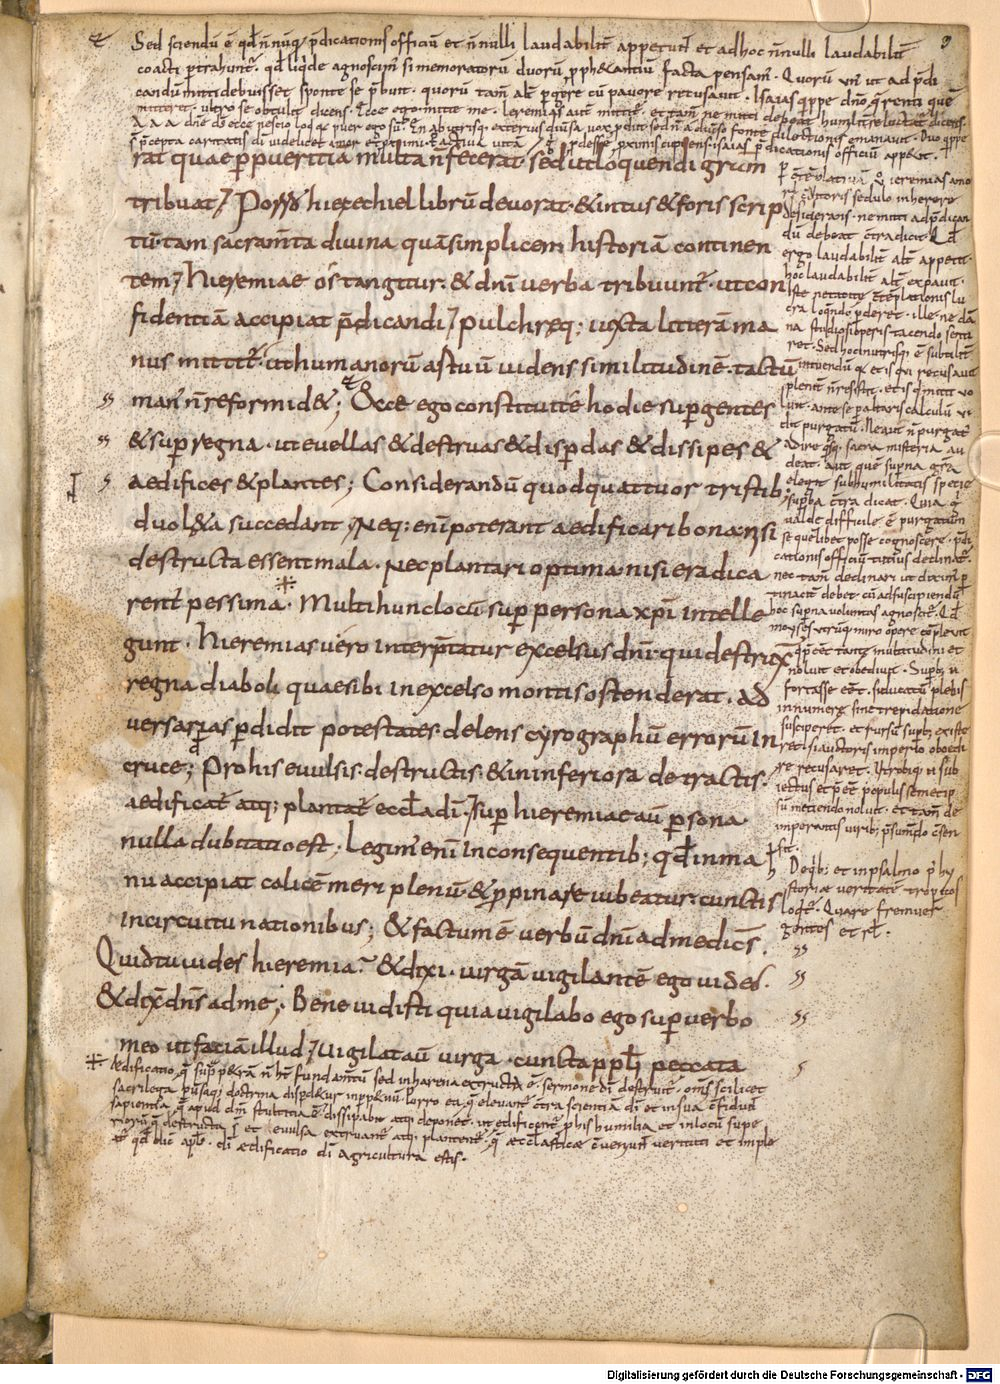 Sed sciendū ē qd̄ n̄nūq; p̄dicationis officiū et n̄nulli laudabilit̄ appetunt et ad hoc n̄nulli laudabilit̄
coacti p̄trahunt̄. qd̄ liq̄de agnoscim̄ si memoratorū duorū p̄ph&antiū facta pensam̄. Quorū un̄ ut ad p̄di
candū mitti debuisset sponte se p̄buit. quorū tam̄ alt̄ p̄gere cū pavore recusavit. Isaias q̄ppe dn̄o q̄renti quē
mitteret. ultro se obtulit dicens. Ecce ego mitte me. Ieremias aut̄ mittit̄. et tam̄ ne mitti debeat humilit̄ reluctat̄ dicens.
A A A dn̄e ds̄ ecce nescio loq̄ q̄a puer ego sū. En ab utrisq; exterius diūsa vox p̄diit sed n̄ a diūso fonte dilectionis emanavit. Duo q̄ppe
s̄ p̄cepta caritatis di videlicet amor et p̄ximi. p̄ activā vitā q̄ p̄desse p̄ximis cupiens isaias p̄dicationis officiū appetit.
rat quae p̄ pueritia multa n̄ fecerat. sed ut loquendi gr̄am
tribuat; Porro hiezechiel librū devorat. & intus & foris scrip
tū. tam sacram̄ta divina quā simplicem historiā continen
tem; Hieremiae os tangitur. & dn̄i verba tribuunt̄. ut con
fidentiā accipiat p̄dicandi; Pulchreq; iuxta litterā ma
nus mittit̄. ut humanorū astuū videns similitudinē. tactū
man̄ n̄ reformid&; Ecce ego constitui te hodie sup̄ gentes
& sup̄ regna. ut evellas & destruas & disp̄das & dissipes &
aedifices & plantes; Considerandū quod quattuor tristib;
duo l&a succedant; Neq; eni poterant aedificari bona nisi
destructa essent mala. nec plantari optima. nisi eradica
rent̄ pessima. Multi hunc locū sup̄ persona xp̄i intelle
gunt. Hieremias vero interp̄tatur excelsus dn̄i. qui destrux̄
regna diaboli quae sibi in excelso montis ostenderat. ad
versarias p̄didit potestates. delens cyrographū errorū in
cruce; Pro his evulsis. destructis. & in inferiora detractis.
aedificat̄ atq; plantat̄ eccl̄a di; Sup̄ hieremiae aū p̄sona
nulla dubitatio est; Legim̄ eni in consequentib; qd̄ in ma
nu accipiat calicē meri plenū. & p̄pinare iubeatur. cunctis
in circuitu nationibus; & factum ē verbū dn̄i ad me dicēs.
Quid tu vides hieremia? & dixi. virgā vigilantē ego video.
& dix̄ dn̄s ad me; Bene vidisti quia vigilabo ego sup̄ verbo
meo ut faciā illud; Vigilat aū virga. cuncta ppl̄i peccata
p̄ c̄teplativā v̄ ieremias amo
ri c̄ditoris sedulo inherere
desiderans. ne mitti ad p̄dican
dū debeat c̄tradicit. Qd̄
ergo laudabilit̄ alt̄ appetiit.
hoc laudabilit̄ alt̄ expavit.
Iste ne tacite c̄teplationis lu
cra loq̄ndo p̄deret. ille ne dā
na studiosi operis tacendo senti
ret. Sed hoc in utrisq; ē subtilit̄
intuendū q̄a et is qui recusavit
plen̄ n̄ restitit. et is q̄ mitti vo
luit. ante se p̄ altaris calculū vi
dit purgatū. Ne aut n̄ purgat̄
adire q̄sq; sacra misteria au
deat. aut quē sup̄na gr̄a
elegit sub humilitatis specie
sup̄ba c̄tra dicat. Quia q̄
valde difficile ē purgatum
se quelibet posse cognoscere. p̄di
cationis officiū tutius declinat̄.
nec tam̄ declinari ut dixim̄ p̄
tinacit̄ debet. cū ad suscipiendū
hoc sup̄na voluntas agnoscit̄. Qd̄
moyses utrūq; miro opere c̄plevit
q̄ p̄ēē tantę multitudini et
noluit et obedivit. Sup̄b; n̄
fortasse ēēt. si ducatū plebis
innumerę sine trepidatione
susciperet. et rursū sup̄b; existe
ret si auctoris imperio obedi
re recusaret. Utrobiq; n̄ sub
iectus et p̄ēē populis semetip
sū metiendo noluit. et tam̄ de
imperantis virib; p̄sum̄do c̄sen
sit.
De q̄b; et in psalmo p̄ hy
storiae veritatē tropicos
loq̄t̄. Quare fremuer̄
gentes et rl̄.
Aedificatio q̄ sup̄ p&rā n̄ ht̄ fundam̄tū sed in harena extructa ē. sermone di destruit̄. oms̄ scilicet
sacrilega p̄usaq; doctrina disp̄d&ur in p̄p&uū. Porro ea q̄ elevant̄ c̄tra scientiā di et in sua c̄fidunt
sapientia q̄ apud dm̄ stultitia ē. dissipabit atq; deponet. ut edificent̄ p̄ his humilia et in locū supe
riorū q̄ destructa s̄ et evulsa extruant̄ atq; plantent̄. q̄ eccl̄asticae c̄veniunt veritati et imple
at̄ qd̄ dic̄ apl̄s. di aedificatio di agricultura estis.
Digitalisierung gefördert durch die Deutsche Forschungsgemeinschaft - DFG